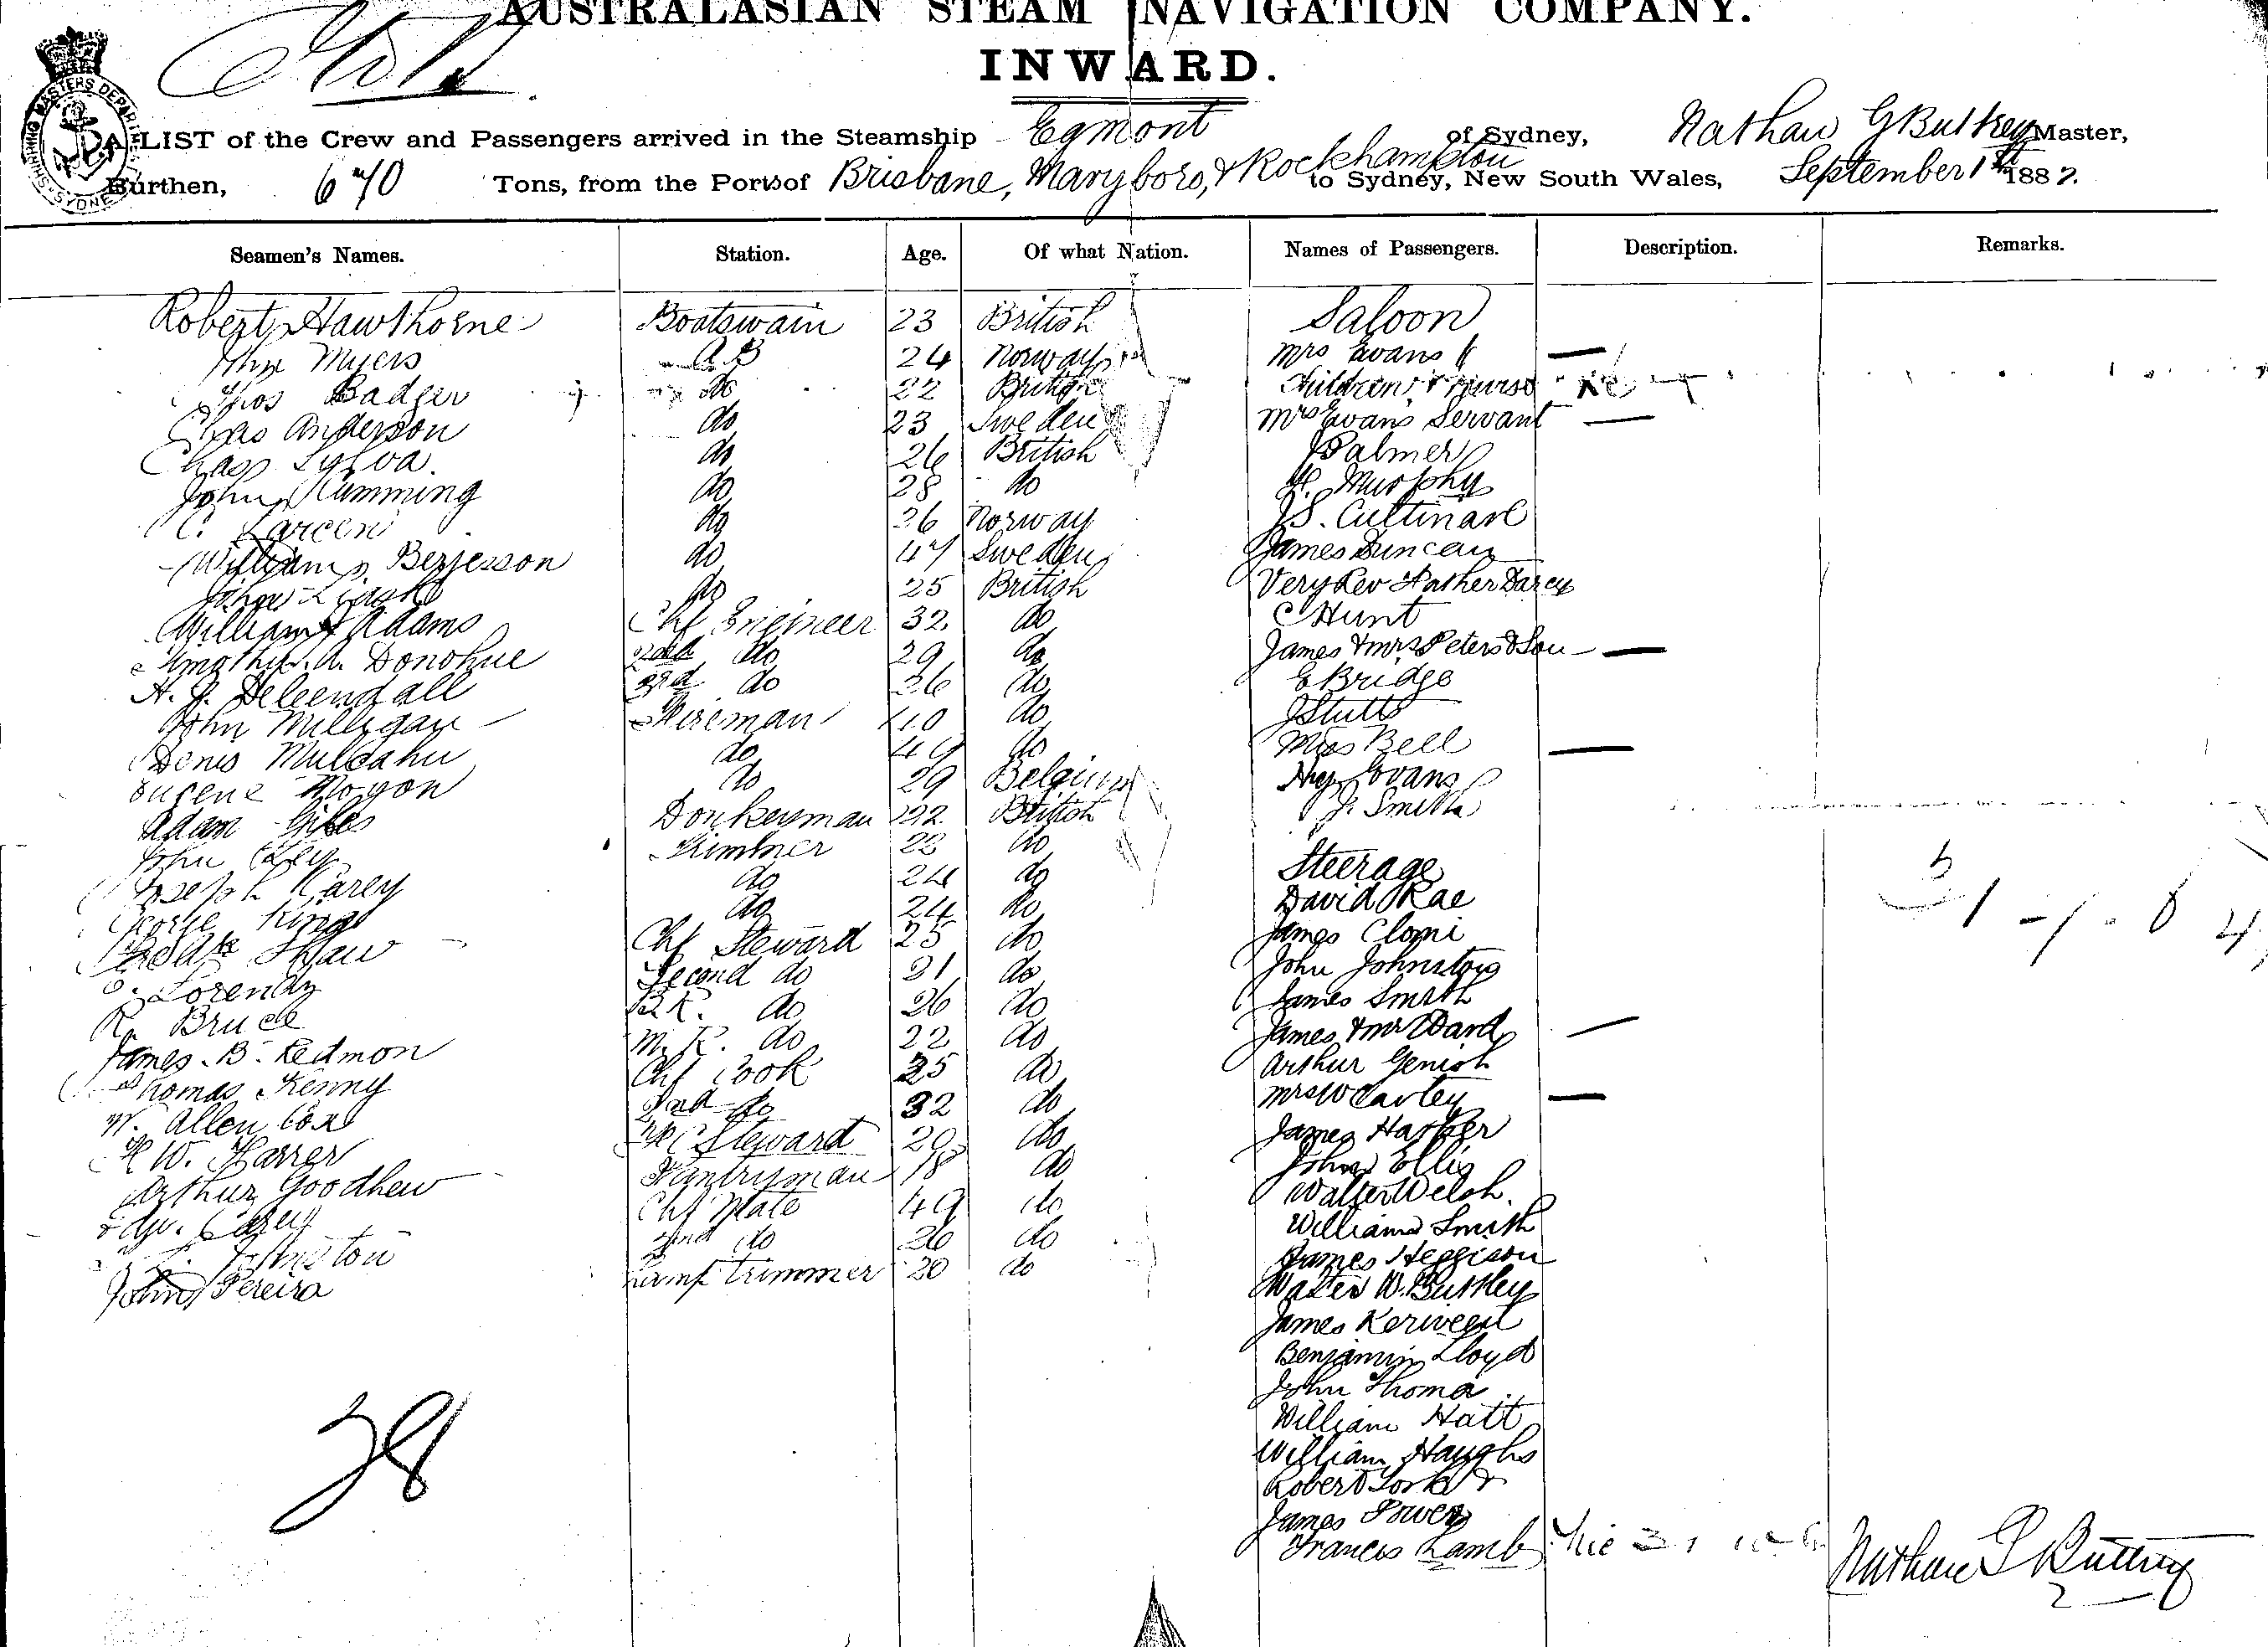 AUSTRALASIAN STEAM NAVIGATION COMPANY.
INWARD.
A LIST of the Crew and Passengers arrived in the Steamship Egmont of Sydney, Nathan G Buttrey Master,
Burthen, 670 Tons, from the Port of Brisbane, Maryboro, & Rockhampton to Sydney, New South Wales, September 1st 1882.
Seamen's Names. Station. Age. Of what Nation. Names of Passengers. Description. Remarks.
Robert Hawthorne Boatswain 23 British Saloon
Myers AB 24 Norway Mrs Evans
Thos Badger do 22 British Children & Nurse
Chas Anderson do 23 Sweden Mrs Evans Servant
Chas Sylva do 26 British J Palmer
John Kumming do 28 do Murphy
C. Larcen do 26 Norway J S. Cullinane
William Berjesson do 47 Sweden James Duncan
John do 25 British Very Rev Father Darcy
William Adams Chf Engineer 32 do C Hunt
Timothy A. Donohue 2nd do 29 do James & Mrs Peters & Son
H. J. 3rd do 26 do E Bridge
John Milligan Fireman 40 do J Stutt
Denis Mulcahu do 49 do Miss Bell
Eugene Moyon do 29 Belgium Hy Evans
Adam Giles Donkeyman 22 British J. Smith
John Trimmer 23 do
Joseph Carey do 24 do Steerage
George King do 24 do David Rae
Shaw Chf Steward 25 do James Clomi
Second do 21 do John Johnston
R. Bruce B.K. do 26 do James Smith
James. B. Redmon M. R. do 22 do James & Mrs Ward
Thomas Kenny Chf Cook 25 do Arthur Genish
W. Allen Cox 2nd do 32 do Mrs W Carley
W. Farrer Steward 20 do James Harper
Arthur Goodhew Pantryman 18 do John Ellis
Carey Chf Mate 49 do Walter Welsh.
Johnston 2nd do 26 do William Smith
John Pereira Lamp trimmer 20 do James Heggison
Walter W. Buttrey
James Kerween
Benjamin Lloyd
John Thoma
William Hatt
William Haughs
Robert York
James Power
Francis Lamb
38
Nathan G Buttrey